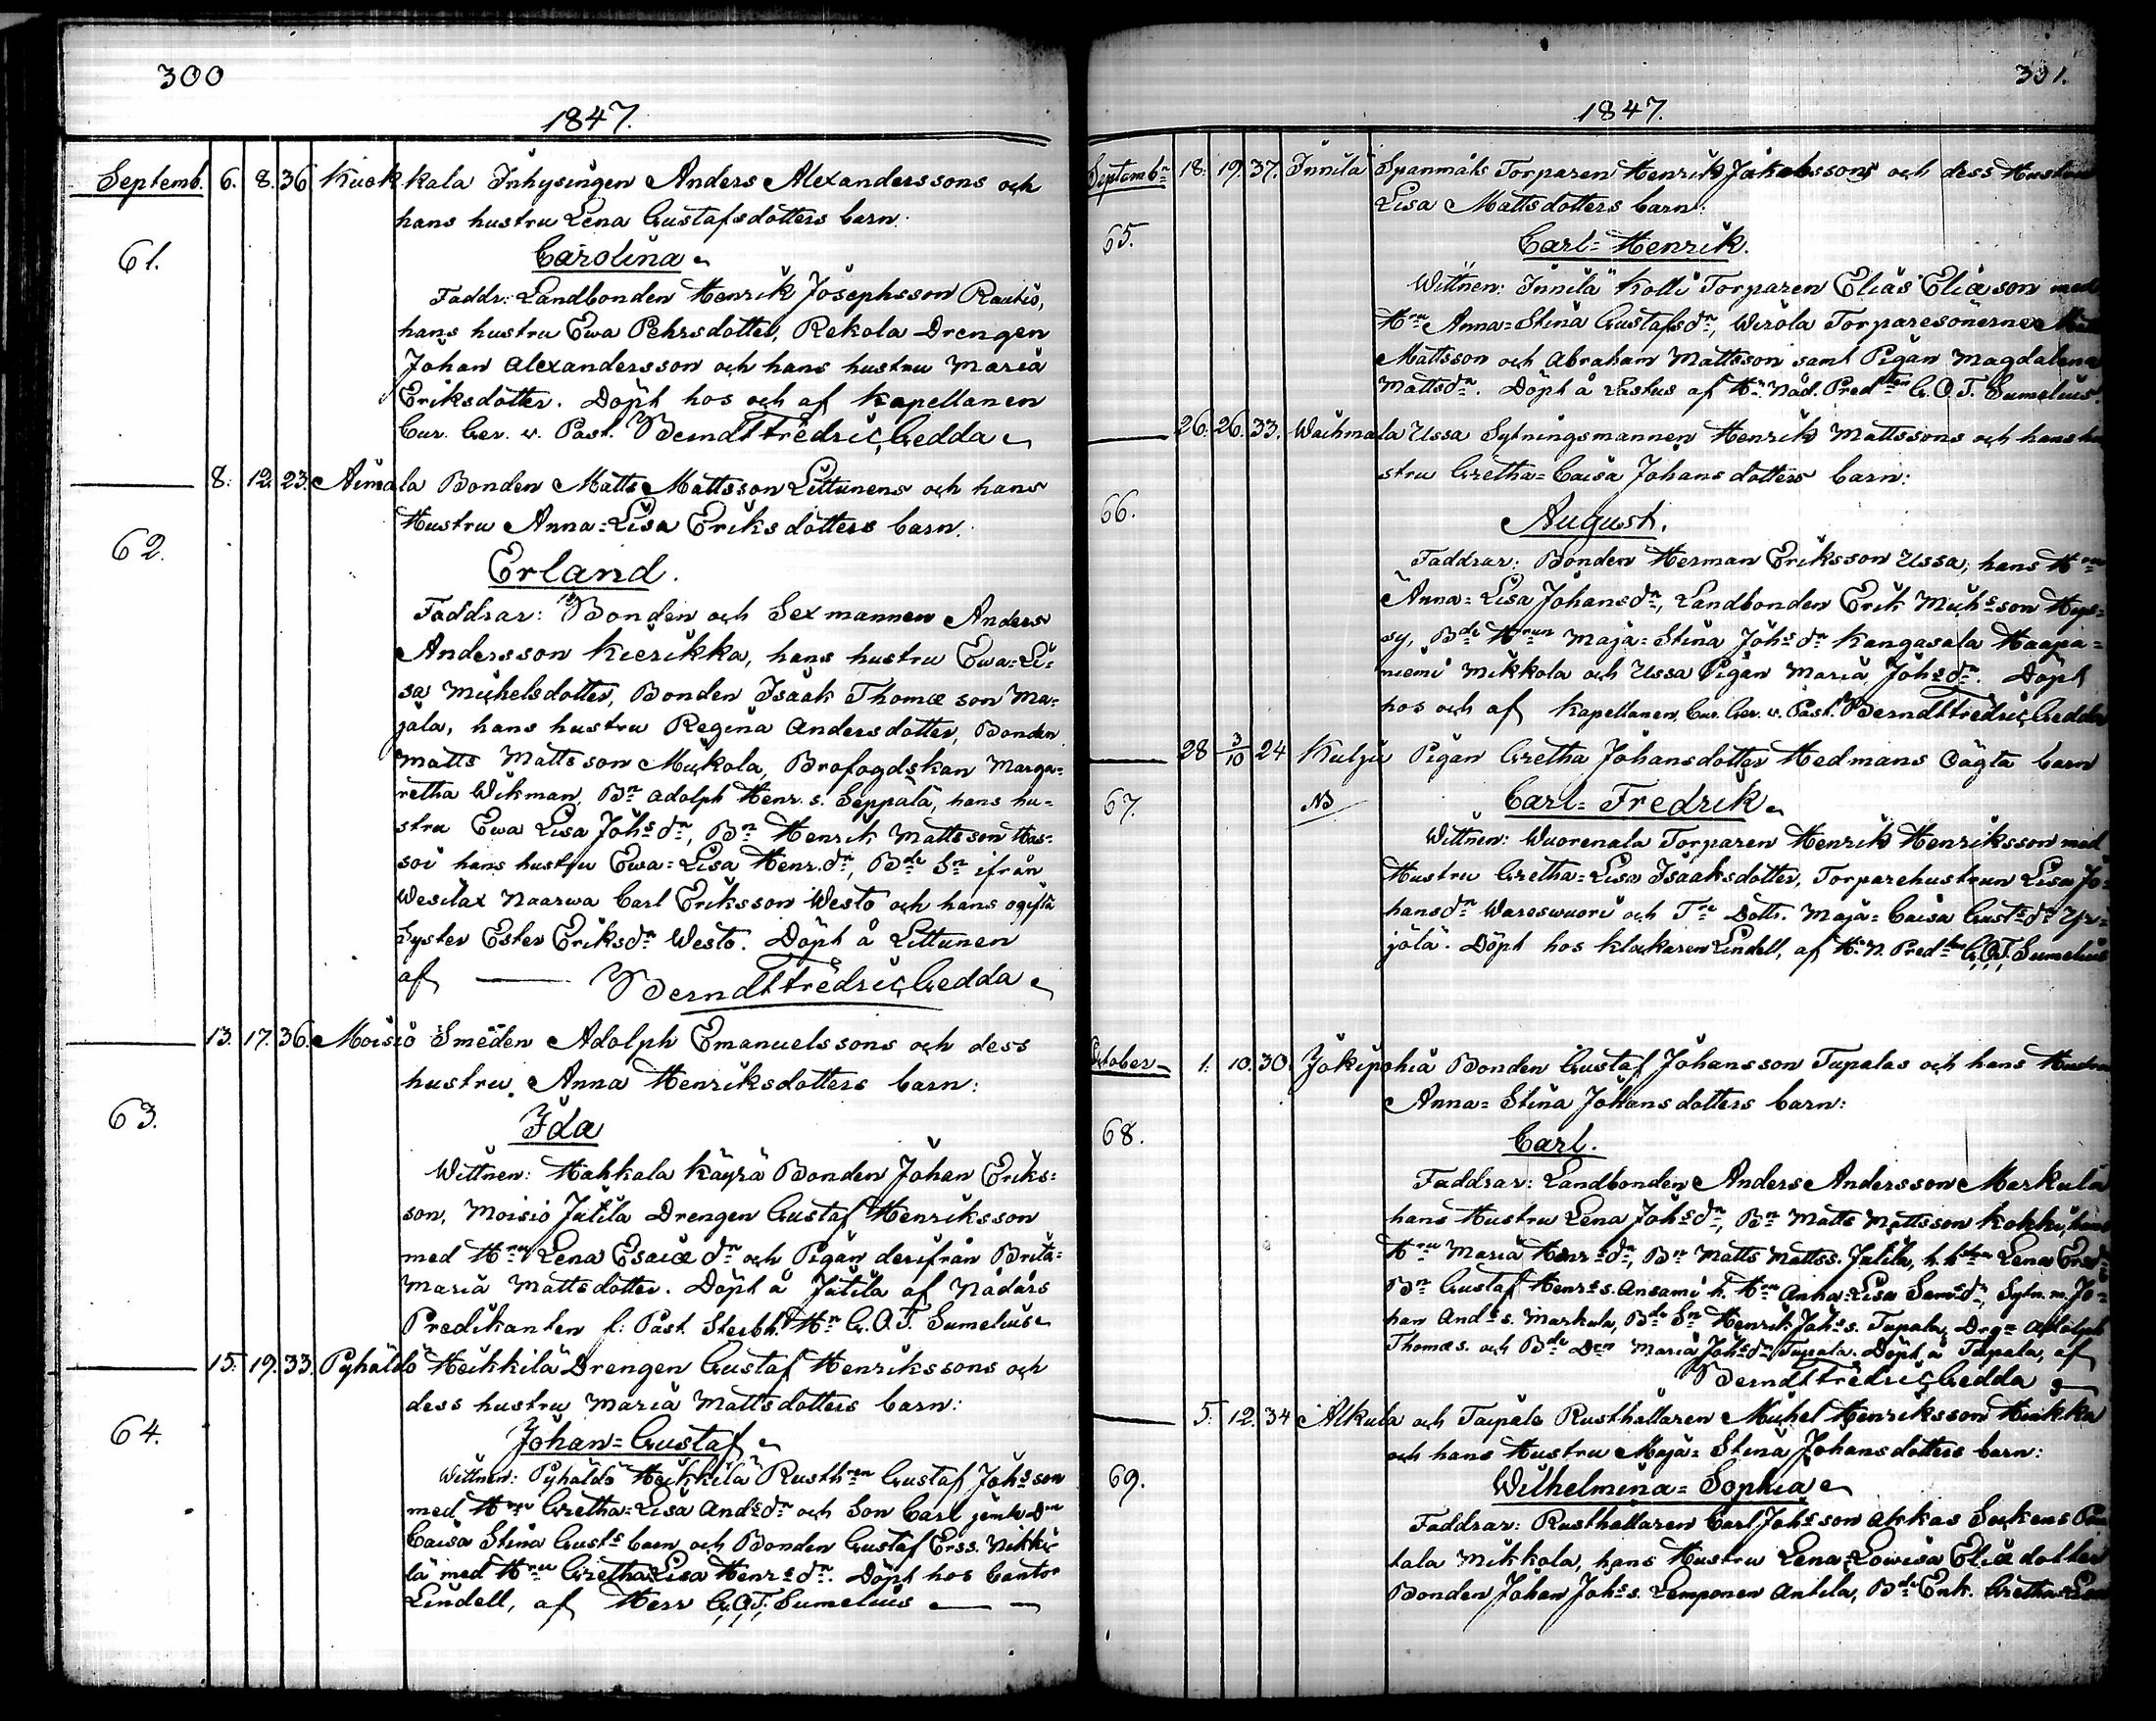 300
1847.
Septemb. 6. 8. 36 Kuokkala Inhysingen Anders Alexanderssons och
hans hustru Lena Gustafsdotters barn:
61.
Carolina
Faddr: Landbonden Henrik Josephsson Rautio,
hans hustru Ewa Pehrsdotter, Rekola Drengen
Johan Alexandersson och hans hustru Maria
Eriksdotter. Döpt hos och af Kapellanen
Cur. Ger. v. Past. Berndt Fredric Gedda
8. 12. 23. Aimala Bonden Matts Mattsson Littunens och hans
Hustru Anna=Lisa Eriksdotters barn.
62.
Erland.
Faddrar: Bonden och Sexmannen Anders
Andersson Kierikka, hans hustru Ewa=Li=
sa Michelsdotter, Bonden Isaak Thomæ son Ma=
jala, hans hustru Regina Andersdotter, Bonden
Matts Mattsson Mickola, Brofogdskan Marga=
retha Wikman, Bn Adolph Henr. s. Seppälä, hans hu=
stru Ewa Lisa Johs dr, Bn Henrik Mattsson Has=
soi hans hustru Ewa=Lisa Henr. dr, Bde Sn ifrån
Wesilax Naarwa Carl Eriksson Westo och hans ogifta
Syster Ester Eriksdr Westo. Döpt å Littunen
af — Berndt Fredric Gedda
13. 17. 36. Moisio Smeden Adolph Emanuelssons och dess
hustru Anna Henriksdotters barn:
63.
Ida
Wittnen: Hahkala Käyrä Bonden Johan Eriks=
son, Moisio Jutila Drengen Gustaf Henriksson
med Hru Lena Esaiæ dr och Pigan derifrån Brita=
Maria Mattsdotter. Döpt å Jutila af Nådårs
Predikanten f: Past. Sterbh. Hr G. O. T. Sumelius
15. 19. 33. Pyhäldö Heikkilä Drengen Gustaf Henrikssons och
dess hustru Maria Mattsdotters barn:
64.
Johan=Gustaf
Wittnen: Pyhäldö Heikkilä Rusthren Gustaf Johsson
med Hru Gretha=Lisa Ands dr och Son Carl jemte Dr
Caisa Stina Gusts barn och Bonden Gustaf Erss. Nikki
lä med Hru Gretha=Lisa Henrs dr. Döpt hos Cantor
Lindell, af Herr G. O. T. Sumelius
301.
1847.
Septembr 18. 19. 37. Innilä Spanmåls Torparen Henrik Jakobssons och dess Hustru
Lisa Mattsdotters barn:
65.
Carl=Henrik.
Wittnen: Innilä Kolli Torparen Elias Eliæson med
Hru Anna=Stina Gustafsdr, Wirola Torparesönerne
Mattsson och Abraham Mattsson samt Pigan Magdalena
Mattsdr. Döpt å Lastus af Hr Nåd. Predten G. O. T. Sumelius.
26. 26. 33. Waihmala Ussa Sytningsmannen Henrik Mattssons och hans hu
stru Gretha=Caisa Johansdotters barn:
66.
August.
Faddrar: Bonden Herman Eriksson Ussa, hans Hru
Anna=Lisa Johansdr, Landbonden Erik Michsson Hyp=
sy, Bde Hrun Maja=Stina Johs dr Kangasala Haapa=
niemi Mikkola och Ussa Pigan Maria Johs dr. Döpt
hos och af Kapellanen, Cur. Ger. v. Past. Berndt Fredric Gedda
28 3/10 24 Kulju Pigan Gretha Johansdotter Hedmans Oägta barn
67.
NB
Carl=Fredrik
Wittnen: Wuorenala Torparen Henrik Henriksson med
Hustru Gretha=Lisa Isaaksdotter, Torparehustrun Lisa Jo=
hansdr Wareswuori och Trn Dottr. Maja=Caisa Gusts dr Yr=
jölä. Döpt hos klockaren Lindell, af Hr N. Predten G. O. T. Sumelius
October 1. 10. 30. Jokipohia Bonden Gustaf Johansson Tupalas och hans Hustru
Anna=Stina Johansdotters barn:
68.
Carl.
Faddrar: Landbonden Anders Andersson Markula
hans Hustru Lena Johs dr, Bn Matts Mattsson Kokko, hans
Hru Maria Henrs dr, Bn Matts Mattss. Jutila, h. hstru Lena Ersdr
Bn Gustaf Henrs s. Ansami h. Hru Anna=Lisa Sams dr, Sytn. m. Jo=
han Ands s. Markula, Bde Sn Henrik Johs s. Tupala, Drgn Adolph
Thomæ s. och Bde Drn Maria Johs dr Tupala. Döpt å Tupala, af
Berndt Fredric Gedda
5. 12. 34 Alkula och Taipale Rusthållaren Michel Henriksson Heikka
och hans Hustru Maja=Stina Johansdotters barn:
69.
Wilhelmina=Sophia
Faddrar: Rusthållaren Carl Johsson Akkas Sockens
tala Mikkola, hans Hustru Lena=Lowisa Eliædotter
Bonden Johan Johs s. Lemponen Antila, Bde Enk. Gretha=Lena